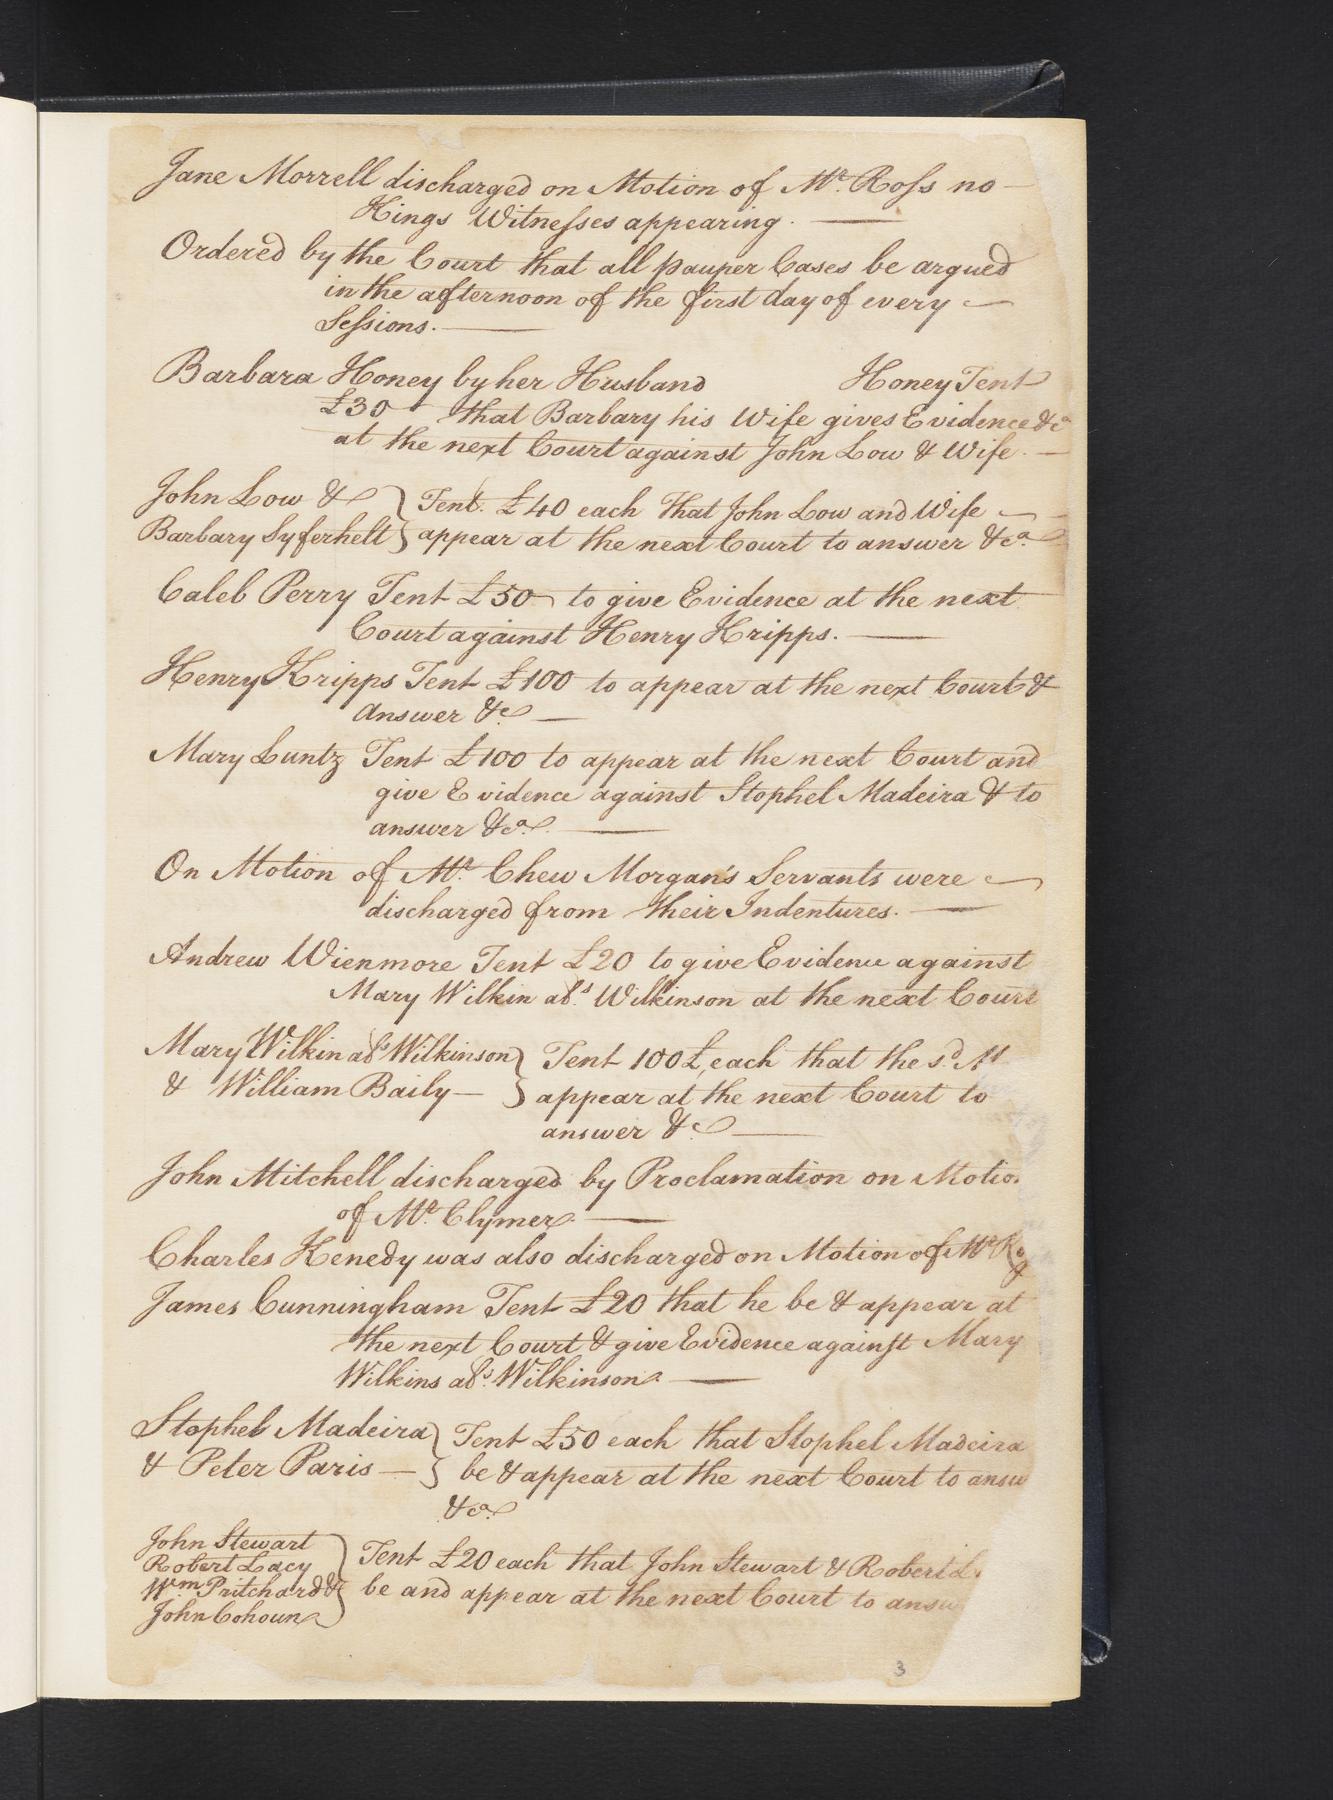 Jane Morrell discharged on Motion of Mr. Ross no —
Kings Witnesses appearing. —
Ordered by the Court that all pauper Cases be argued
in the afternoon of the first day of every —
Sessions. —
Barbara Honey by her Husband Honey Tent
£30 that Barbary his Wife gives Evidence &c
at the next Court against John Low & Wife. —
John Low & } Tent. £40 each that John Low and Wife —
Barbary Syferhelt } appear at the next Court to answer &ca.
Caleb Perry Tent £50 to give Evidence at the next
Court against Henry Kripps. —
Henry Kripps Tent £100 to appear at the next Court &
answer &c —
Mary Luntz Tent £100 to appear at the next Court and
give Evidence against Stophel Madeira & to
answer &ca. —
On Motion of Mr. Chew Morgan's Servants were —
discharged from their Indentures. —
Andrew Wienmore Tent £20 to give Evidence against
Mary Wilkin als. Wilkinson at the next Court
Mary Wilkin als Wilkinson } Tent 100£ each that the sd. M
& William Baily — } appear at the next Court to
answer &c —
John Mitchell discharged by Proclamation on Motio
of Mr. Clymer —
Charles Kenedy was also discharged on Motion of Mr
James Cunningham Tent £20 that he be & appear at
the next Court & give Evidence against Mary
Wilkins als. Wilkinson. —
Stophel Madeira } Tent £50 each that Stophel Madeira
& Peter Paris — } be & appear at the next Court to answ
&ca.
John Stewart
Robert Lacy } Tent £20 each that John Stewart & Robert L
Wm Pritchard & } be and appear at the next Court to answ
John Cohoun
3